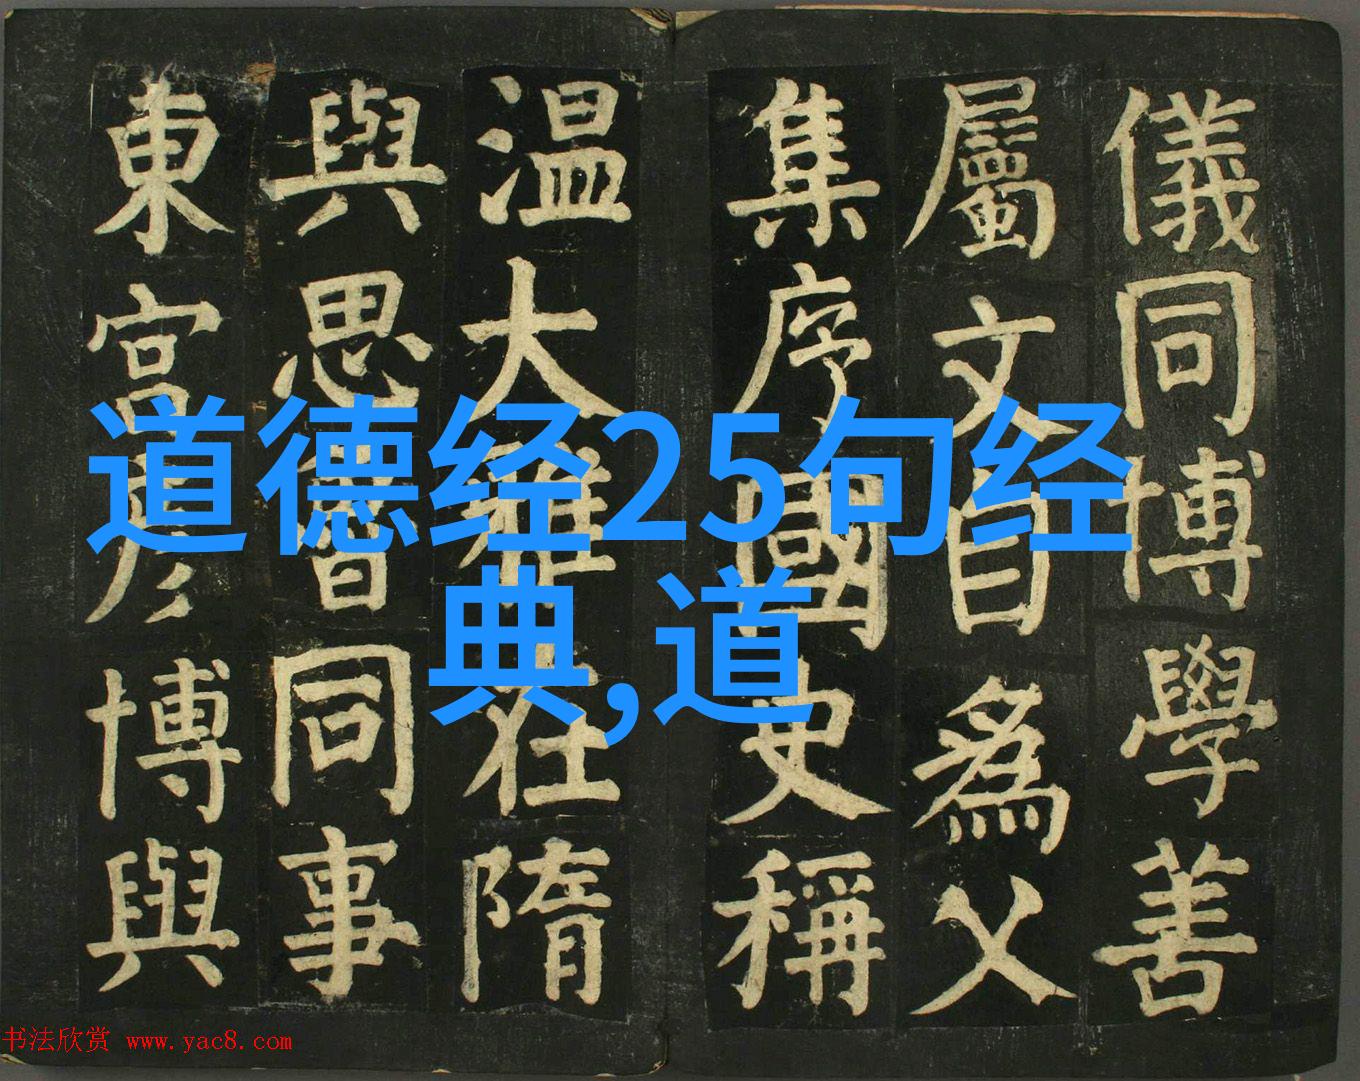 儀同博學善
屬文自為父
集序國史稱
溫大雅在隋
與思魯同事
東宮彥博與
道德经25句经
典,道
书法欣赏 www.yac8.com